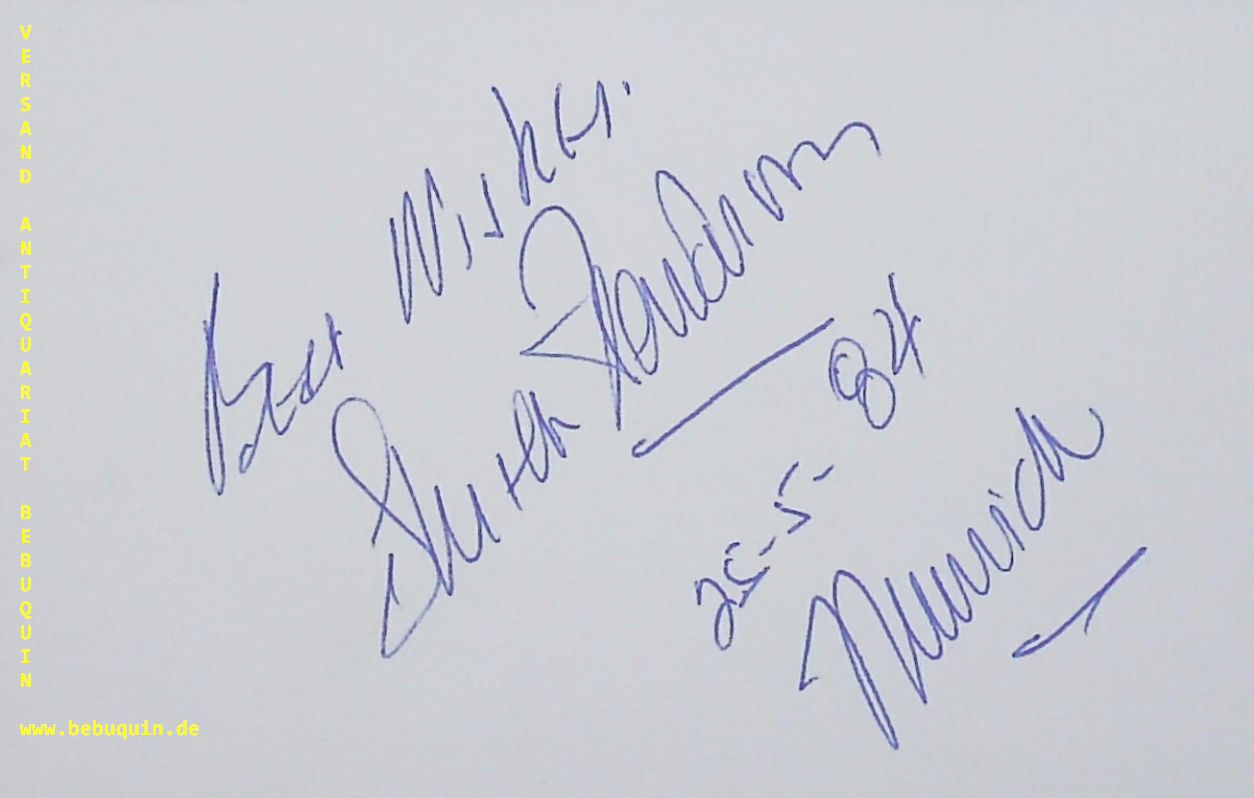 VERSAND ANTIQUARIAT BEBUQUIN
Best Wishes.
25-5-84
Munich
www.bebuquin.de